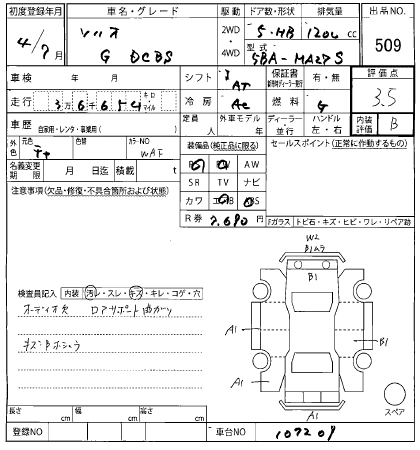 初度登録年月 車名・グレード 駆動 ドア数・形状 排気量 出品NO.
4/7月 ソリオ 2WD・4WD 5・HB 1200cc 509
G DCBS 型式 5BA-MA27S
車検 年 月 シフト AT 保証書 有・無 評価点
走行 3万6千654 キロ マイル 冷房 AC 燃料 G 3.5
車歴 自家用・レンタ・事業用( ) 定員 外車モデル ディーラー・並行 ハンドル 左・右 内装評価 B
外色 元色 色替 カラーNO WAF 装備品(純正品に限る) セールスポイント(正常に作動するもの)
名義変更期限 月 日迄 積載 t AW
注意事項(欠品・修復・不具合箇所および状態) SR TV ナビ
カワ エアB
R券 7,690円 Fガラス トビ石・キズ・ヒビ・ワレ・リペア跡
W2
Bムラ
B1
検査員記入 内装 汚レ・スレ・キズ・キレ・コゲ・穴
オーディオ欠 ロアサポート曲がり
A1
B1
A1
A1
スペア
長さ cm 幅 cm 高さ cm
登録NO 車台NO 107209